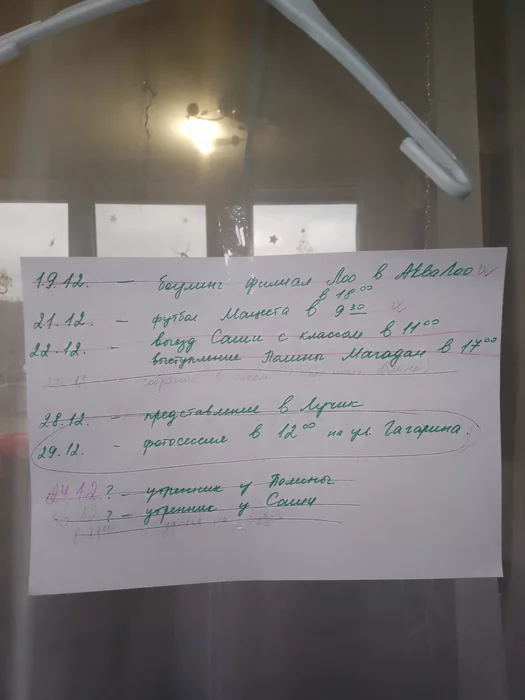 19.12. — боулинг филиал Лоо в АкваЛоо
в 18⁰⁰
21.12. — футбол Мацеста в 9 30
22.12. — выезд Саши с классом в 11⁰⁰
выступление Полины Магадан в 17⁰⁰
собрание в
28.12. — представление в Лучик
29.12. — фотосессия в 12⁰⁰ на ул. Гагарина.
24.12 ? — утренник у Полины
? — утренник у Саши